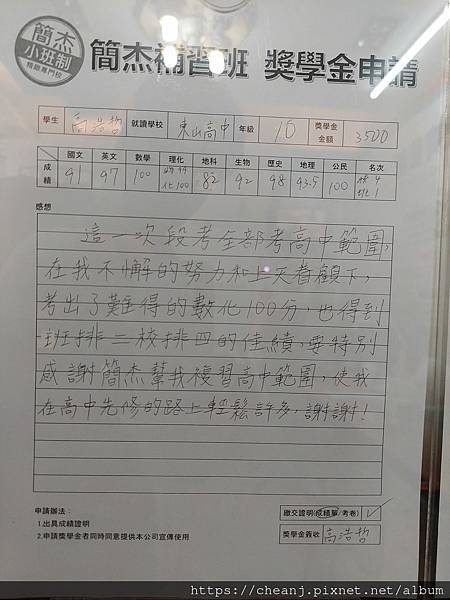 簡杰
小班制
精緻專門校
簡杰補習班 獎學金申請
學生 高浩哲 就讀學校 東山高中 年級 10 獎學金金額 3500
成績 國文 英文 數學 理化 地科 生物 歷史 地理 公民 名次
91 97 100 物99 化100 82 92 98 93.5 100 校4
感想
這一次段考全部考高中範圍,
在我不懈的努力和上天眷顧下,
考出了難得的數化100分,也得到
班排二校排四的佳績,要特別
感謝簡杰幫我複習高中範圍,使我
在高中先修的路上輕鬆許多,謝謝!
申請辦法:
1.出具成績證明
2.申請獎學金者同時同意提供本公司宣傳使用
繳交證明(成績單/考卷) V
獎學金簽收 高浩哲
https://cheanj.pixnet.net/album